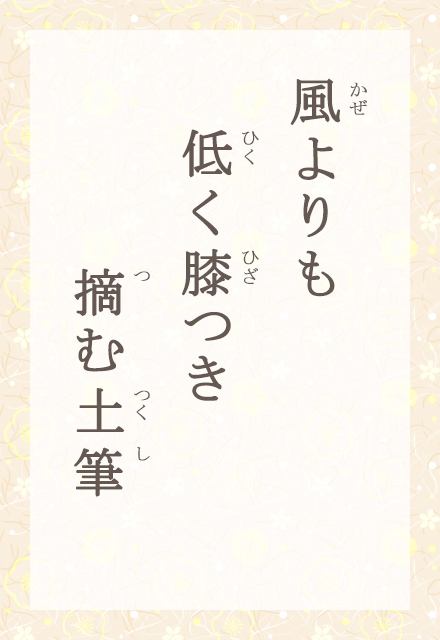 風よりも
かぜ
低く膝つき
ひく ひざ
摘む土筆
つ つくし